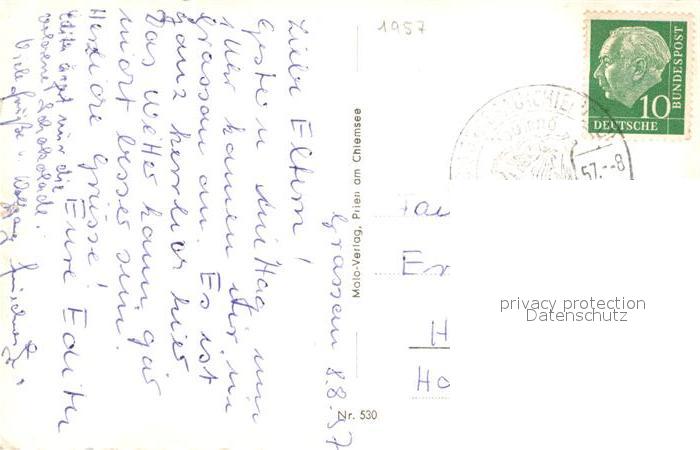 Grassau 8.8.57
Liebe Eltern!
Gestern Mittag um
1 Uhr kamen wir in
Grassau an. Es ist
ganz herrlich hier
Das Wetter kann gar
nicht besser sein.
Herzliche Grüsse!
Eure Edith
Edith ärgert mir die
verlorene Schokolade.
Viele Grüße v. Wolfgang
1957
DEUTSCHE
BUNDESPOST
10
57.-8
Moto-Verlag, Prien am Chiemsee
Nr. 530
Er
H
Ho
privacy protection
Datenschutz